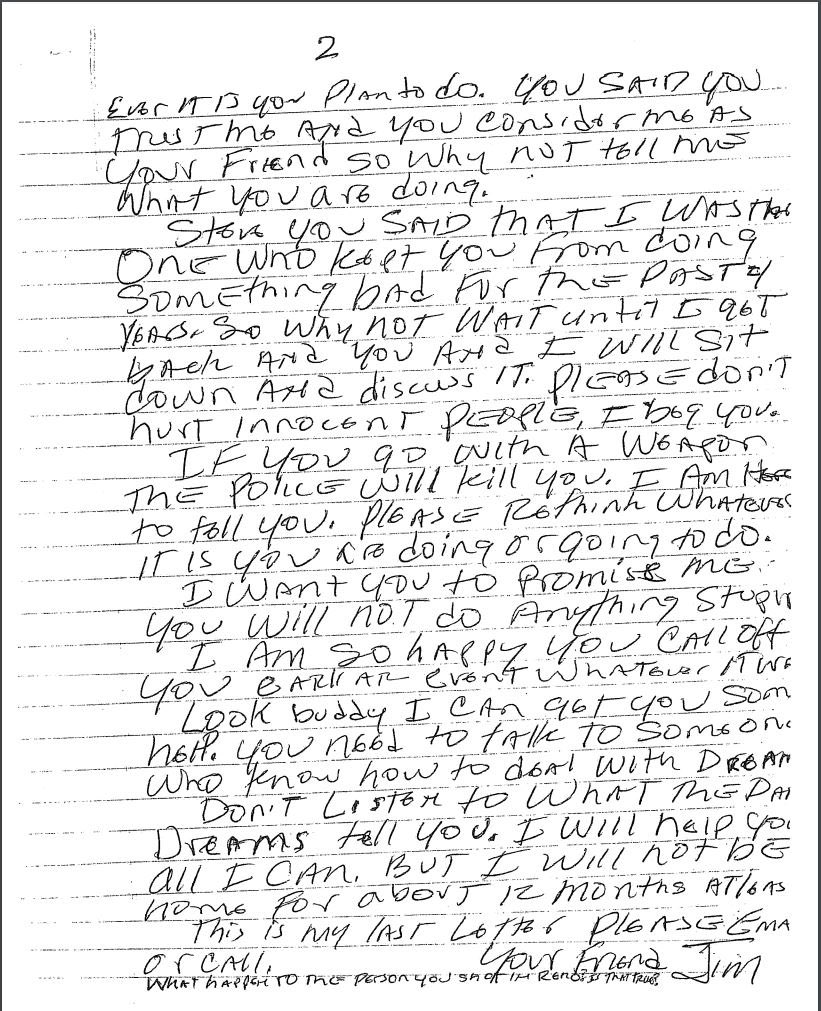 2
Ever it is your Plan to do. You SAID you
trust me And you consider me As
your Friend so why not tell me
what you are doing.
Steve you SAID that I was the
One who kept you from doing
Something bad for the Past 4
years. So why not wait until I get
back And you And I will sit
down And discuss it. Please don't
hurt innocent people, I beg you.
If you go with a weapon
the police will kill you. I Am Here
to tell you. Please Rethink whatever
it is you are doing or going to do.
I want you to promise me.
You will not do Anything Stupi
I Am so happy you call off
you earliar event whatever it w
Look buddy I can get you som
help. You need to talk to someon
who know how to deal with Dream
Don't Listen to what the Da
Dreams tell you. I will help you
all I can. But I will not be
home for about 12 months at leas
This is my last Letter Please Ema
or call. Your Friend Jim
What happen to the person you shot in Reno? Is that true?